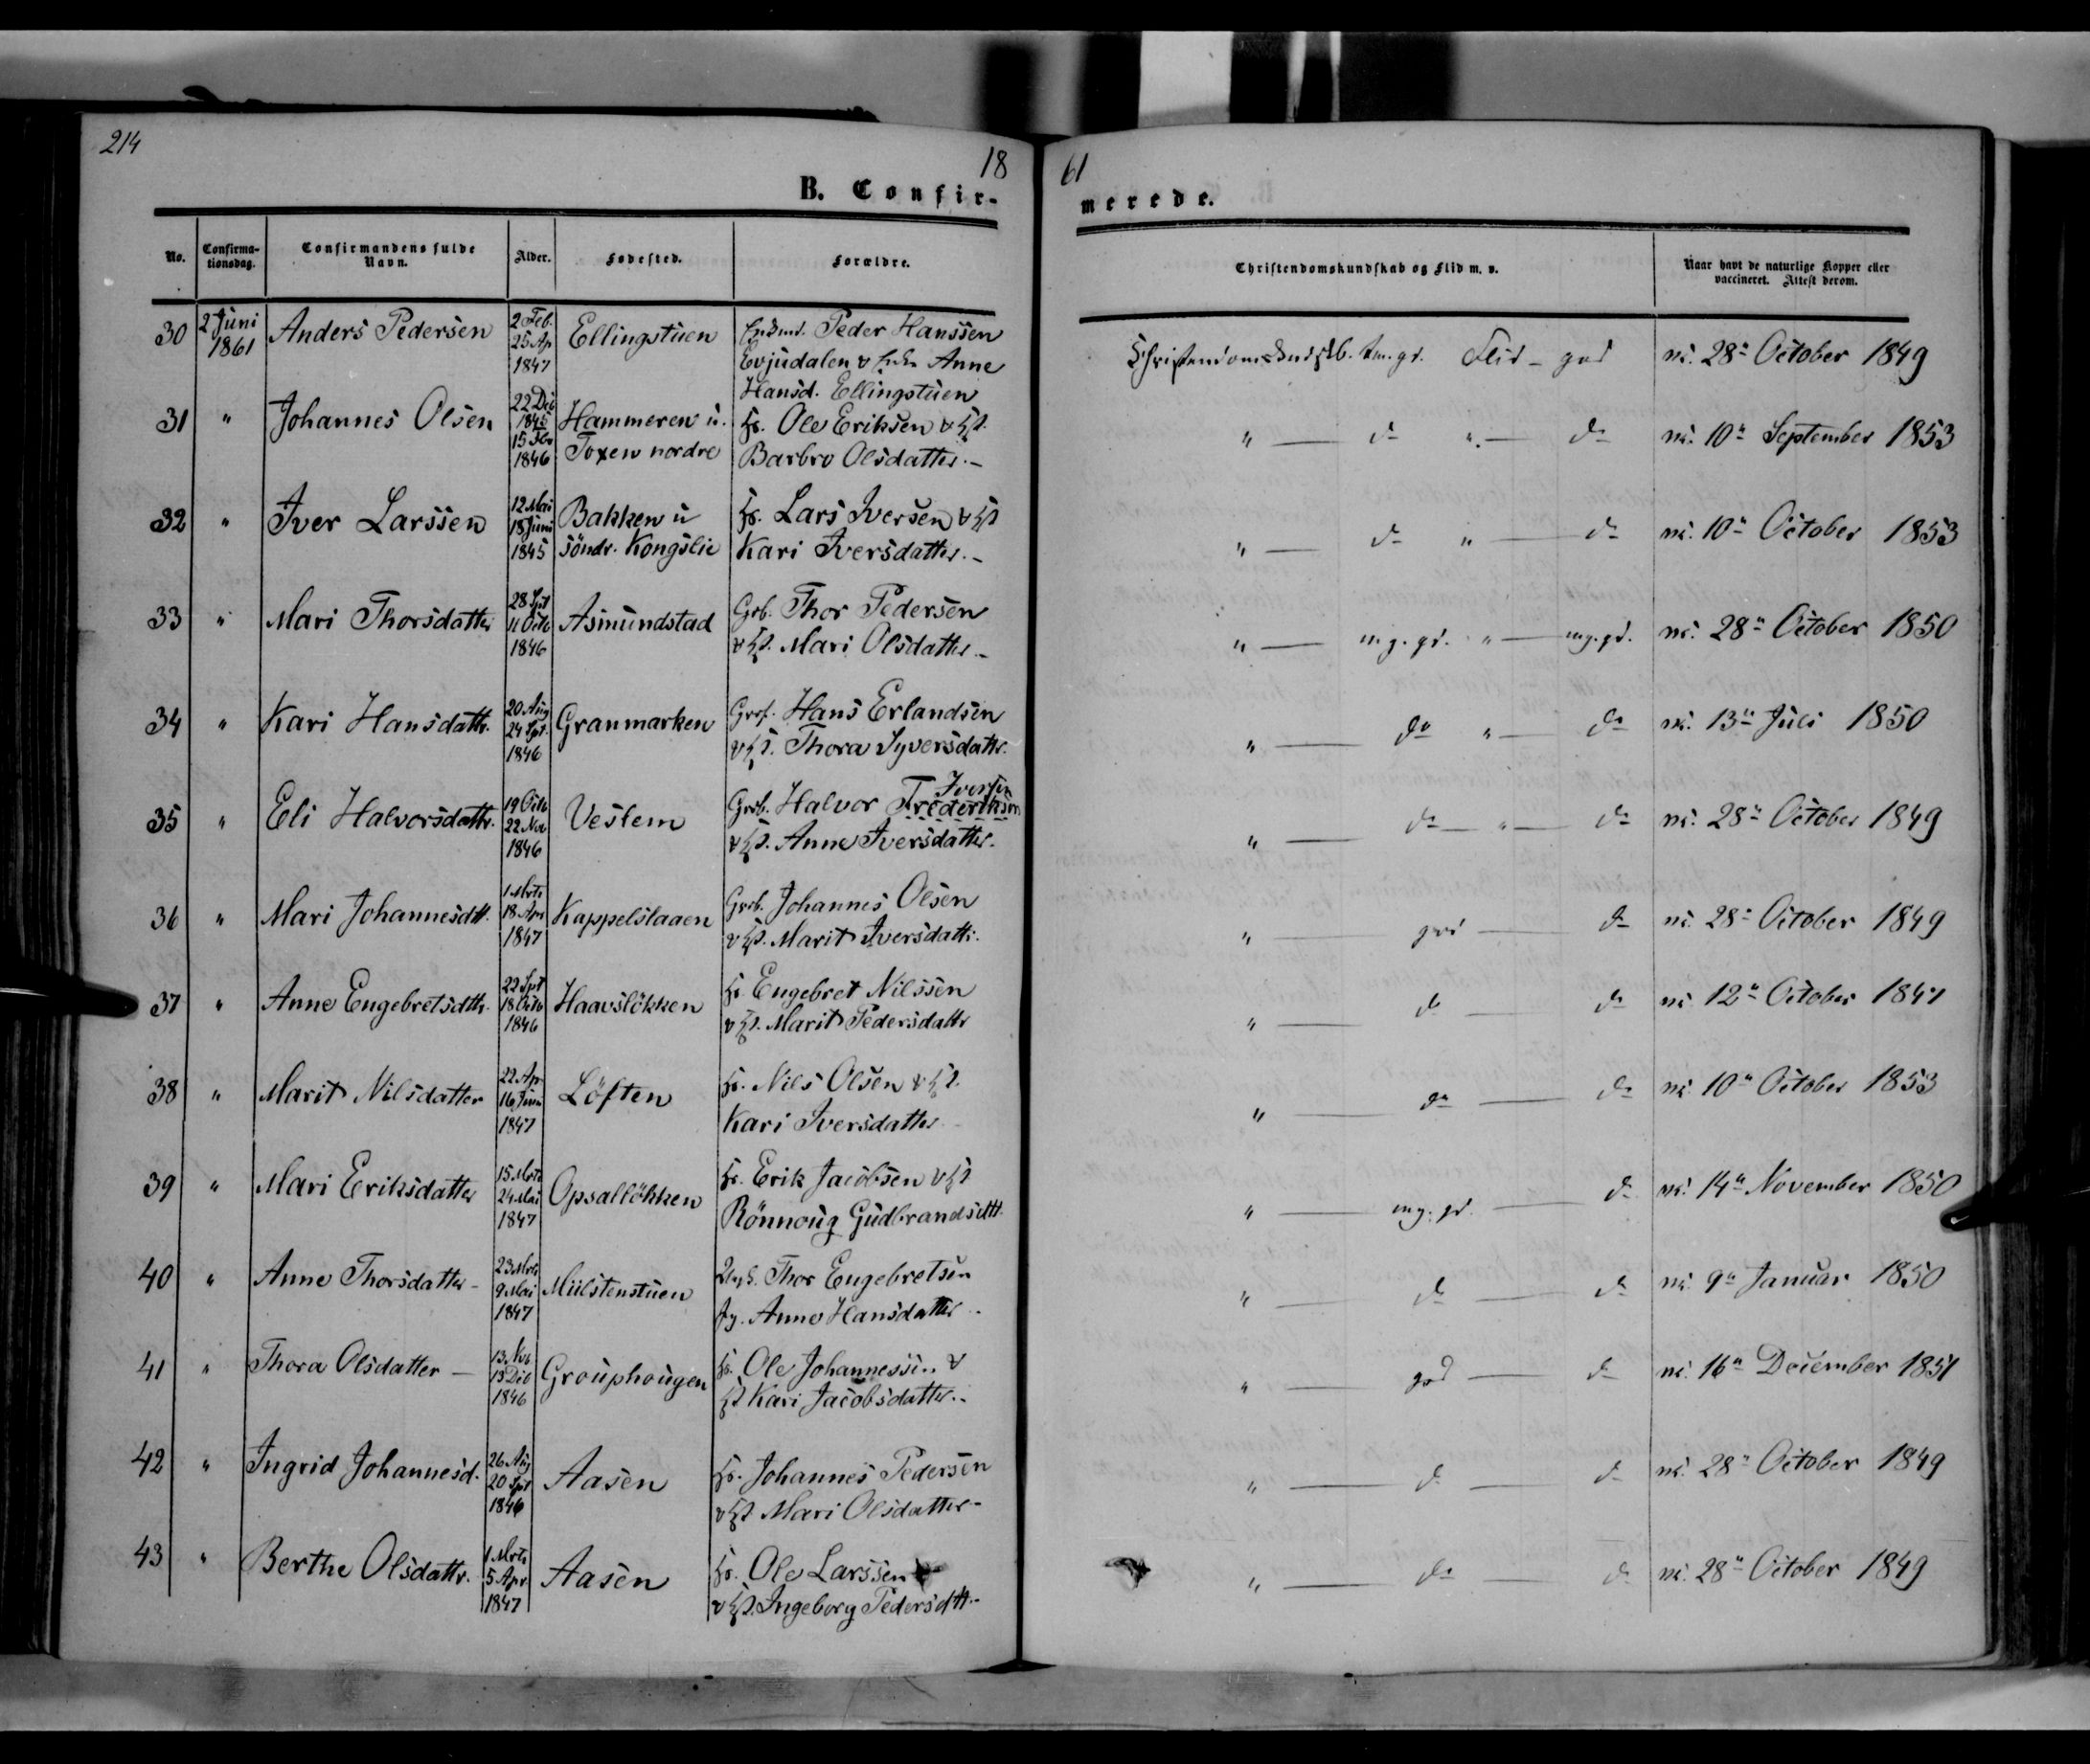 214
18
61
B. Confir-
merede.
No.
Confirma-
tionsdag.
Confirmandens fulde
Navn.
Alder.
Fødested.
Forældre.
Christendomskundskab og Flid m. v.
Naar havt de naturlige Kopper eller
vaccineret. Attest derom.
30 2 Juni 1861 Anders Pedersen 2 Feb. 25 Ap 1847 Ellingstuen Peder Hanssen
Evjudalen Anne
Hansd. Ellingstuen
Christendomskundskb. tm. gd. Flid - god
28 October 1849
31 " Johannes Olsen 22 Deb 1845 15 Feb 1846 Hammeren u. Ole Eriksen
Toxen nordre Barbro Olsdatter.-
" — do " — do 10 September 1853
32 " Iver Larssen 12 Mai 18 Juni 1845 Bakken u Lars Iversen
söndr. Kongslie Kari Iversdatter.-
" — do " — do 10 October 1853
33 " Mari Thorsdatter 28 Spt 11 Octb 1846 Asmundstad Grb. Thor Pedersen
Mari Olsdatter.-
" — mg. gd. " — mg. gd. 28 October 1850
34 " Kari Hansdattr. 20 Aug 24 Spt. 1846 Granmarken Hans Erlandsen
Thora Syversdattr.
" — do " — do 13 Juli 1850
35 " Eli Halvorsdattr. 19 Octb 22 Nov 1846 Veslem Iversen
Grb. Halvor Frederiksen
Anne Iversdatter.
" — do — " — do 28 October 1849
36 " Mari Johannesdtt. 1 Mrts 18 Apr 1847 Kappelslaaen Grb. Johannes Olsen
Marit Iversdattr.
" — god — do 28 October 1849
37 " Anne Engebretsdttr. 22 Spt 18 Octb 1846 Haavslökken Engebret Nilssen
Marit Pedersdattr
" — do — do 12 October 1847
38 " Marit Nilsdatter 22 Apr 16 Juni 1847 Löften Nils Olsen
Kari Iversdatter
" — do — do 10 October 1853
39 " Mari Eriksdatter 15 Mrts 24 Mai 1847 Opsallökken Erik Jacobsen
Rönnoug Gudbrandsdtt.
" — mg. gd. — do 14 November 1850
40 " Anne Thorsdatter - 23 Mrts 9 Mai 1847 Mülstenstuen Thor Engebretsen
Anne Hansdatter -
" — do — do 9 Januar 1850
41 " Thora Olsdatter — 13 Nvb 13 Deb 1846 Grouphougen Ole Johannessen
Kari Jacobsdatter.-
" — god — do 16 December 1851
42 " Ingrid Johannesd. 26 Aug 20 Spt 1846 Aasen Johannes Pedersen
Mari Olsdatter-
" — do — do 28 October 1849
43 " Berthe Olsdattr. 1 Mrts 5 Apr 1847 Aasen Ole Larssen
Ingeborg Pedersdtt.-
" — do — do 28 October 1849